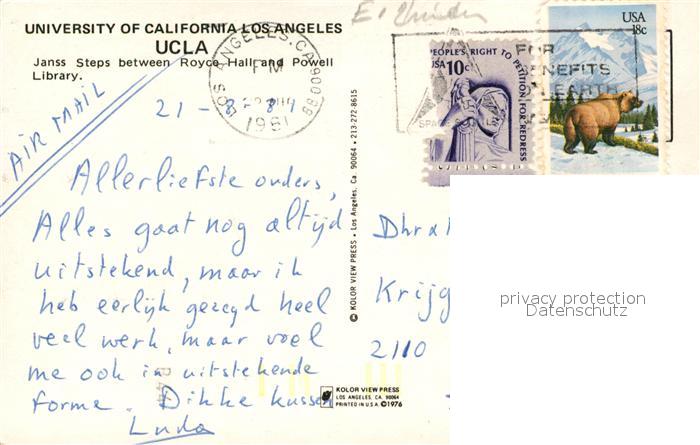 UNIVERSITY OF CALIFORNIA LOS ANGELES
UCLA
Janss Steps between Royce Hall and Powell
Library.
AIR MAIL
21-8-81
LOS ANGELES, CA 900
PM
1981
PEOPLE'S RIGHT TO PETITION FOR REDRESS
USA 10c
FOR
BENEFITS
EARTH
USA
18c
Allerliefste ouders,
Alles gaat nog altijd
uitstekend, maar ik
heb eerlijk gezegd heel
veel werk, maar voel
me ook in uitstekende
forme. Dikke kussen
Luda
© KOLOR VIEW PRESS • Los Angeles, Ca. 90064 • 213-272-8615
Krijg
2110
privacy protection
Datenschutz
KOLOR VIEW PRESS
LOS ANGELES, CA. 90064
PRINTED IN U.S.A. ©1976